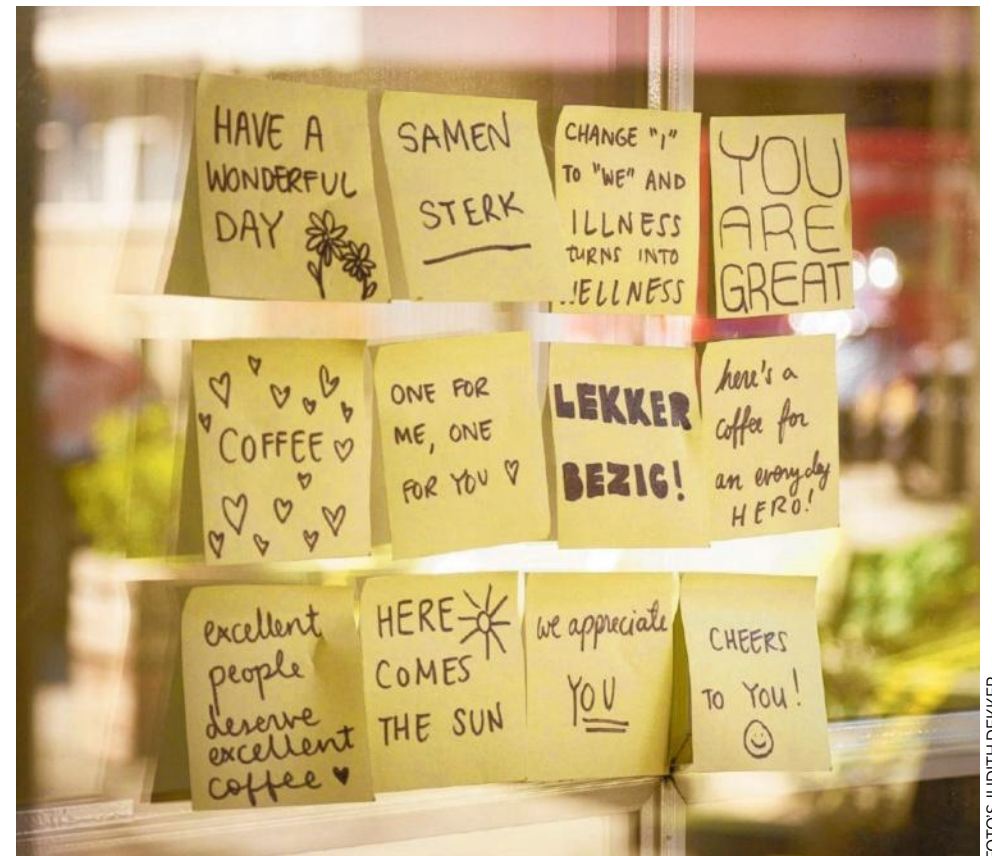 HAVE A
WONDERFUL
DAY
SAMEN
STERK
CHANGE "I"
TO "WE" AND
ILLNESS
TURNS INTO
WELLNESS
YOU
ARE
GREAT
COFFEE
ONE FOR
ME, ONE
FOR YOU ♡
LEKKER
BEZIG!
here's a
coffee for
an everyday
HERO!
excellent
people
deserve
excellent
coffee ♥
HERE
COMES
THE SUN
we appreciate
YOU
CHEERS
TO YOU!
FOTO'S JUDITH DEKKER